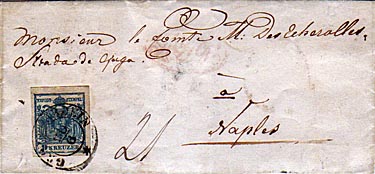 Monsieur le Comte M. Des Echerolles
Strada de
à
Naples
KREUZER
21